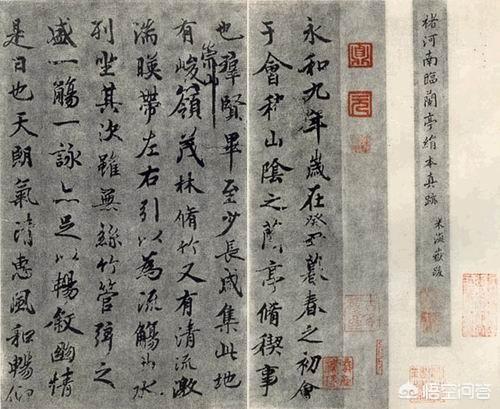 褚河南臨蘭亭絹本真跡
米海嶽跋
永和九年歲在癸丑暮春之初會
于會稽山陰之蘭亭脩稧事
也羣賢畢至少長咸集此地
有崇山峻嶺茂林脩竹又有清流激
湍暎帶左右引以為流觴曲水
列坐其次雖無絲竹管弦之
盛一觴一詠亦足以暢敘幽情
是日也天朗氣清惠風和暢仰
悟空问答